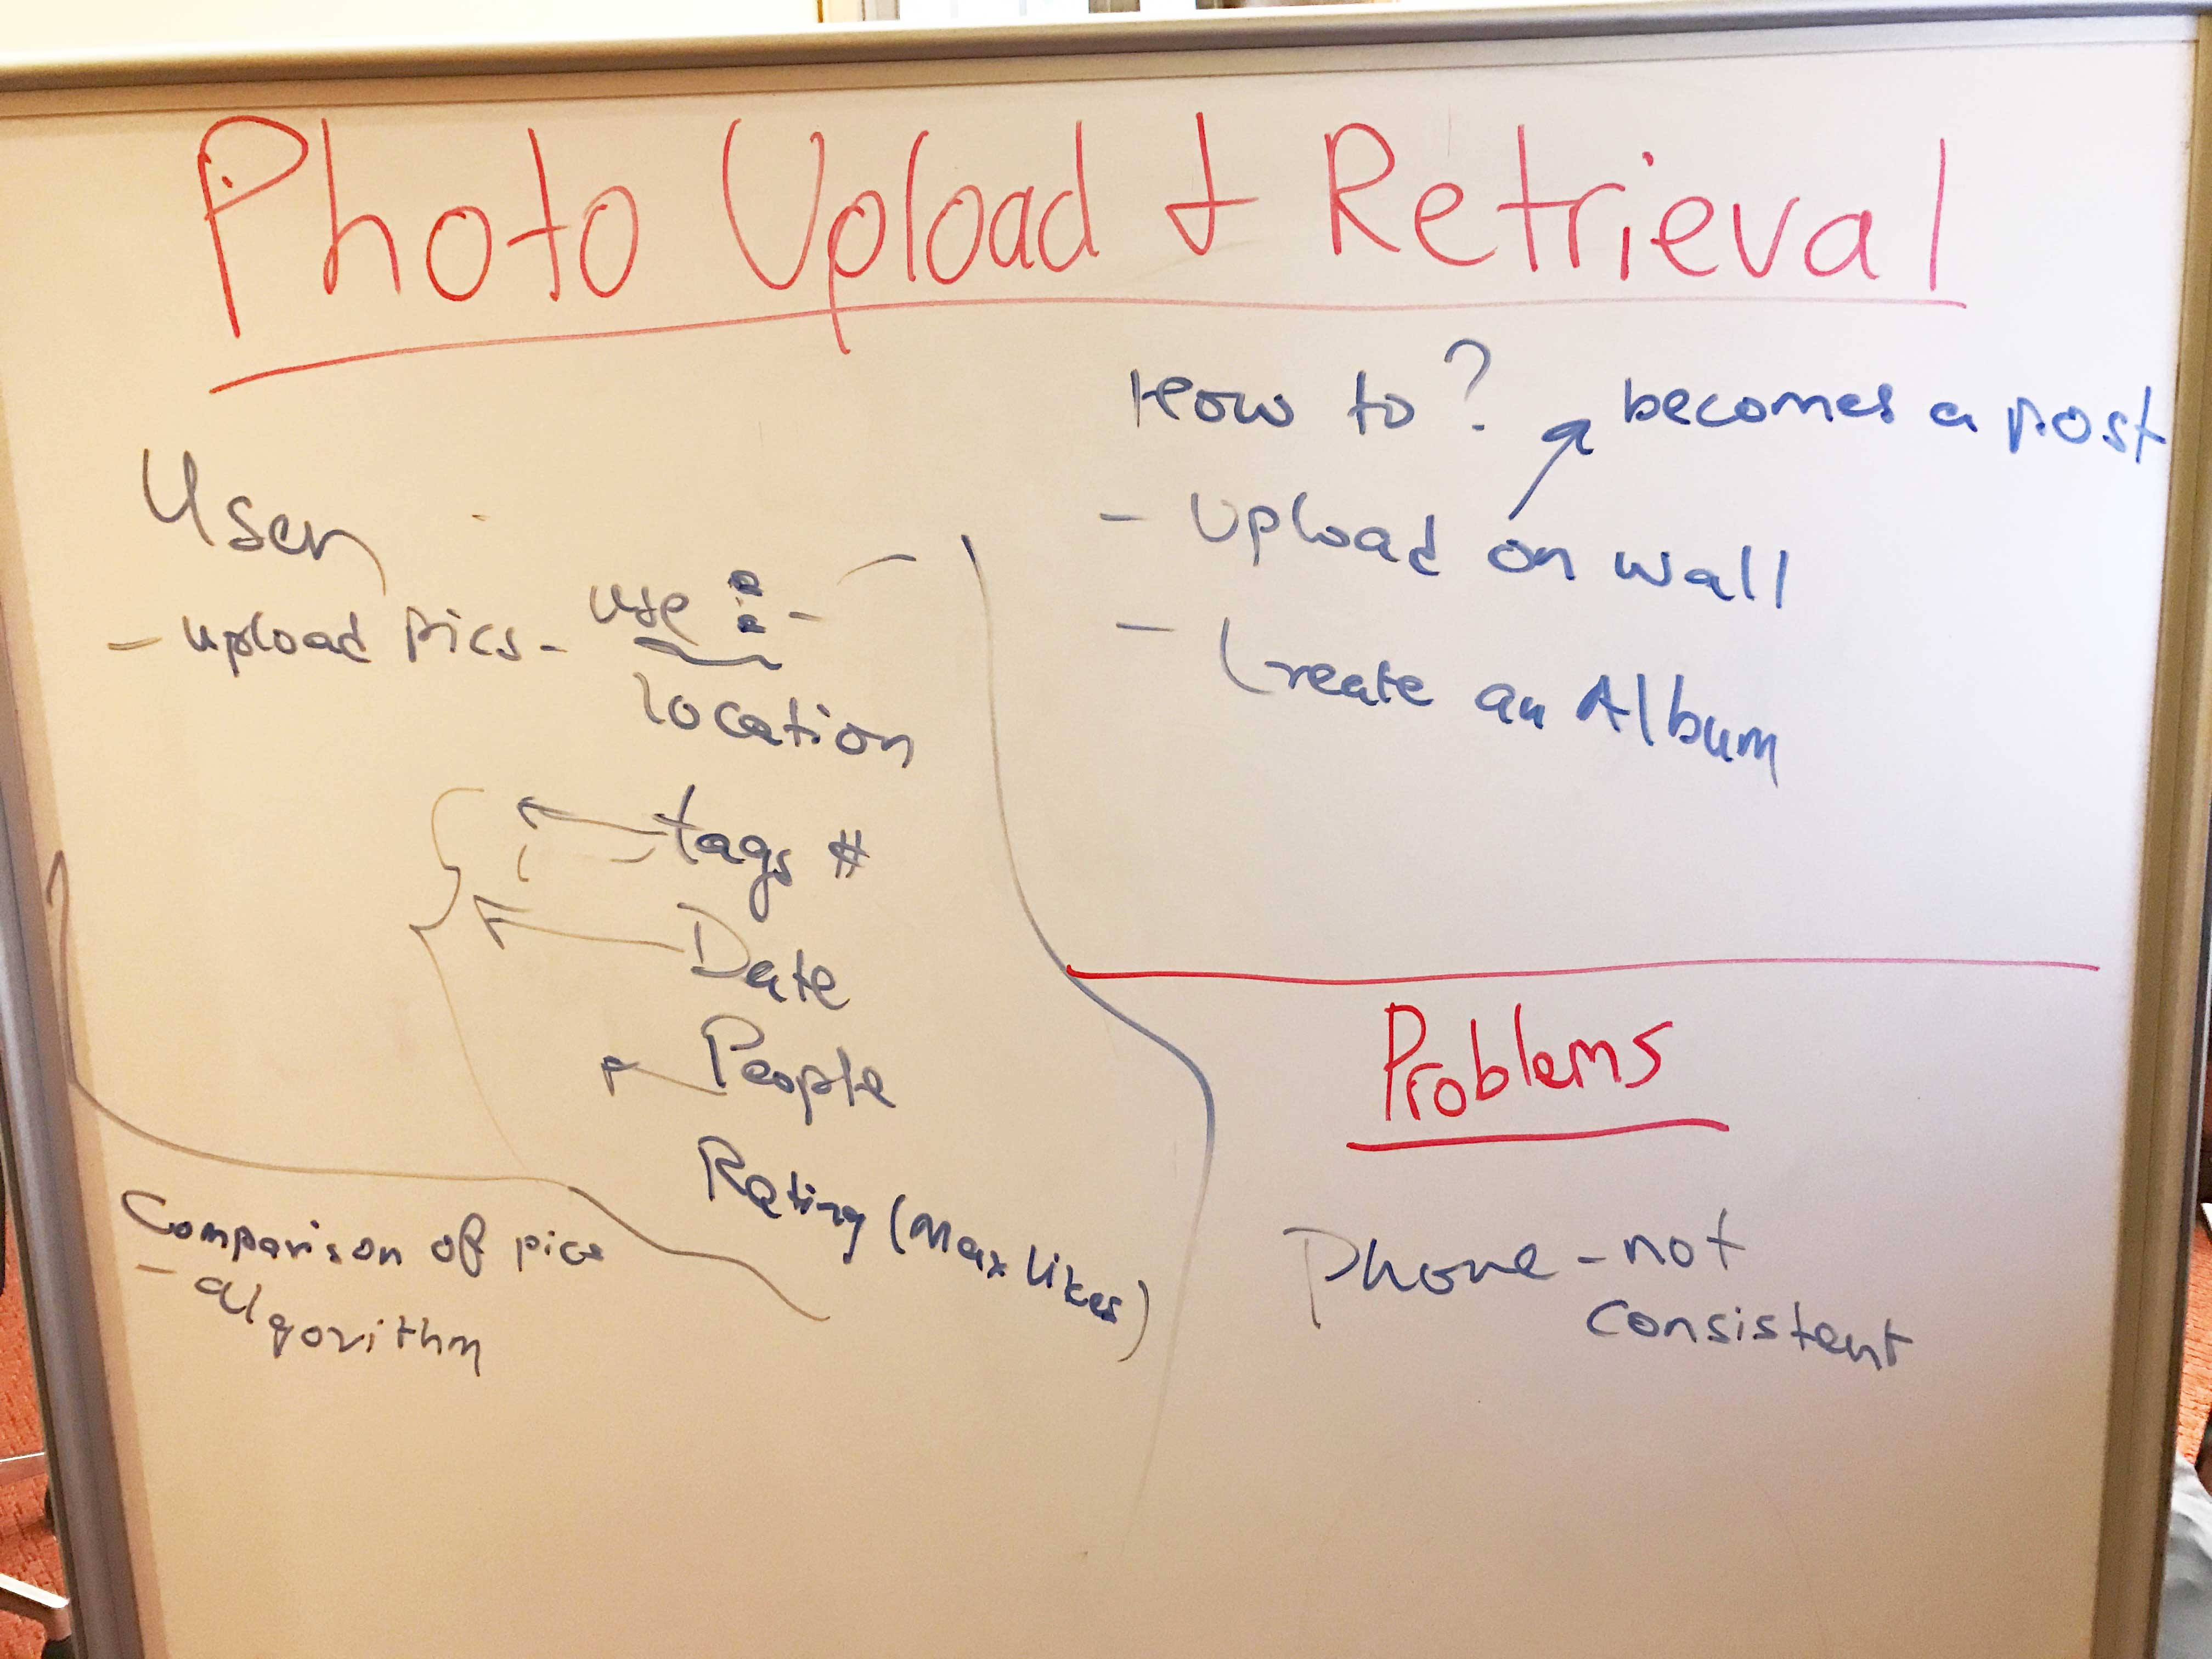 Photo Upload & Retrieval
User
- upload pics - use : -
location
tags #
Date
People
Rating (Max likes)
Comparison of pics
- algorithm
How to?
becomes a post
- Upload on wall
- Create an Album
Problems
Phone - not
consistent